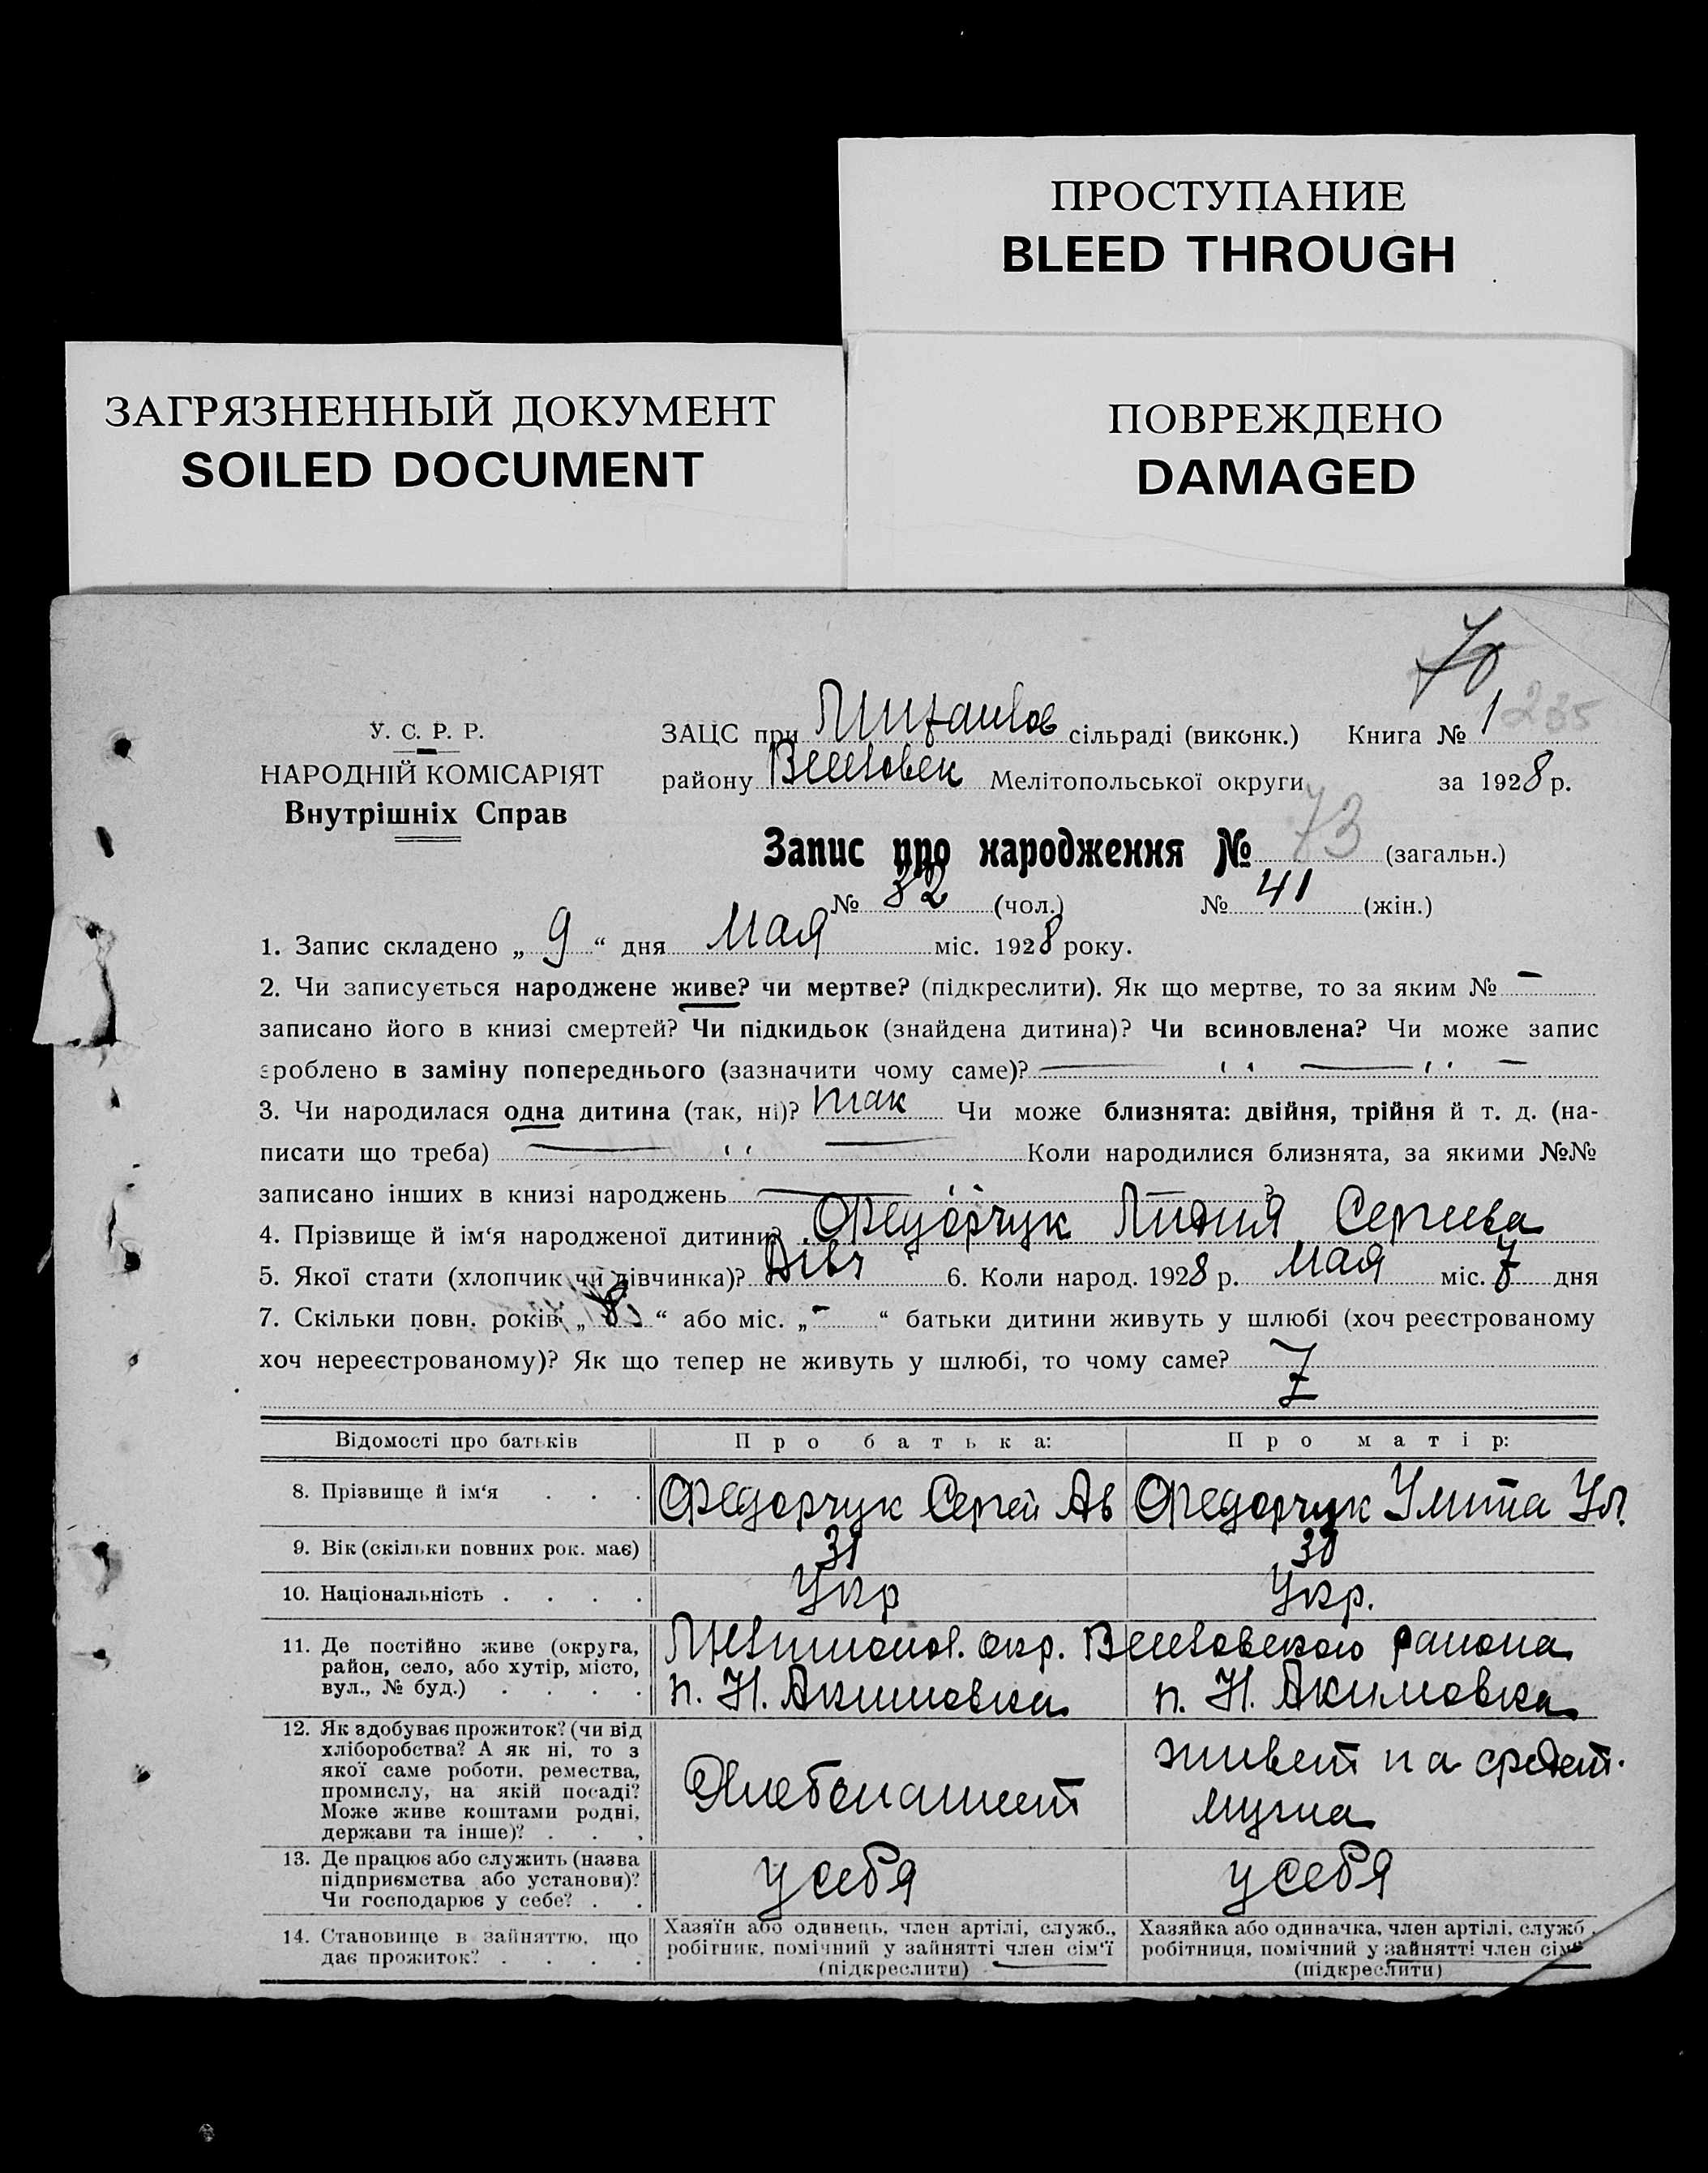 ПРОСТУПАНИЕ
BLEED THROUGH
ЗАГРЯЗНЕННЫЙ ДОКУМЕНТ
SOILED DOCUMENT
ПОВРЕЖДЕНО
DAMAGED
70
235
У. С. Р. Р.
НАРОДНІЙ КОМІСАРІЯТ
Внутрішніх Справ
ЗАЦС при Михайлов сільраді (виконк.) Книга № 1
району Веселовск Мелітопольської округи за 1928 р.
Запис про народження № 73 (загальн.)
№ 32 (чол.) № 41 (жін.)
1. Запис складено „ 9 “ дня Мая міс. 1928 року.
2. Чи записується народжене живе? чи мертве? (підкреслити). Як що мертве, то за яким № –
записано його в книзі смертей? Чи підкидьок (знайдена дитина)? Чи всиновлена? Чи може запис
зроблено в заміну попереднього (зазначити чому саме)? — ‚‚ — ‚‚ –
3. Чи народилася одна дитина (так, ні)? так Чи може близнята: двійня, трійня й т. д. (на-
писати що треба) — ‚‚ — Коли народилися близнята, за якими №№
записано інших в книзі народжень — ‚‚ — ?
4. Прізвище й ім‘я народженої дитини? Федорчук Лидия Сергеева
5. Якої стати (хлопчик чи дівчинка)? Дівч 6. Коли народ. 1928 р. Мая міс. 7 дня
7. Скільки повн. років „ 8 “ або міс. „ – “ батьки дитини живуть у шлюбі (хоч реєстрованому
хоч нереєстрованому)? Як що тепер не живуть у шлюбі, то чому саме?
Відомості про батьків Про батька: Про матір:
8. Прізвище й ім‘я . . . Федорчук Сергей Ав Федорчук Улита Ул.
9. Вік (скільки повних рок. має) 31 30
10. Національність . . . . Укр Укр.
11. Де постійно живе (округа,
район, село, або хутір, місто,
вул., № буд.) . . . .
Мелитопол. окр. Веселовского района
п. Н. Акимовка п. Н. Акимовка
12. Як здобуває прожиток? (чи від
хліборобства? А як ні, то з
якої саме роботи, ремества,
промислу, на якій посаді?
Може живе коштами родні,
держави та інше)? . . .
Хлебопашест
живет на средст.
мужа
13. Де працює або служить (назва
підприємства або установи)?
Чи господарює у себе? . .
у себя у себя
14. Становище в зайняттю, що
дає прожиток? . . . .
Хазяїн або одинець, член артілі, служб.,
робітник, помічний у зайнятті член сім‘ї
(підкреслити)
Хазяйка або одиначка, член артілі, служб.,
робітниця, помічний у зайнятті член сім‘ї
(підкреслити)